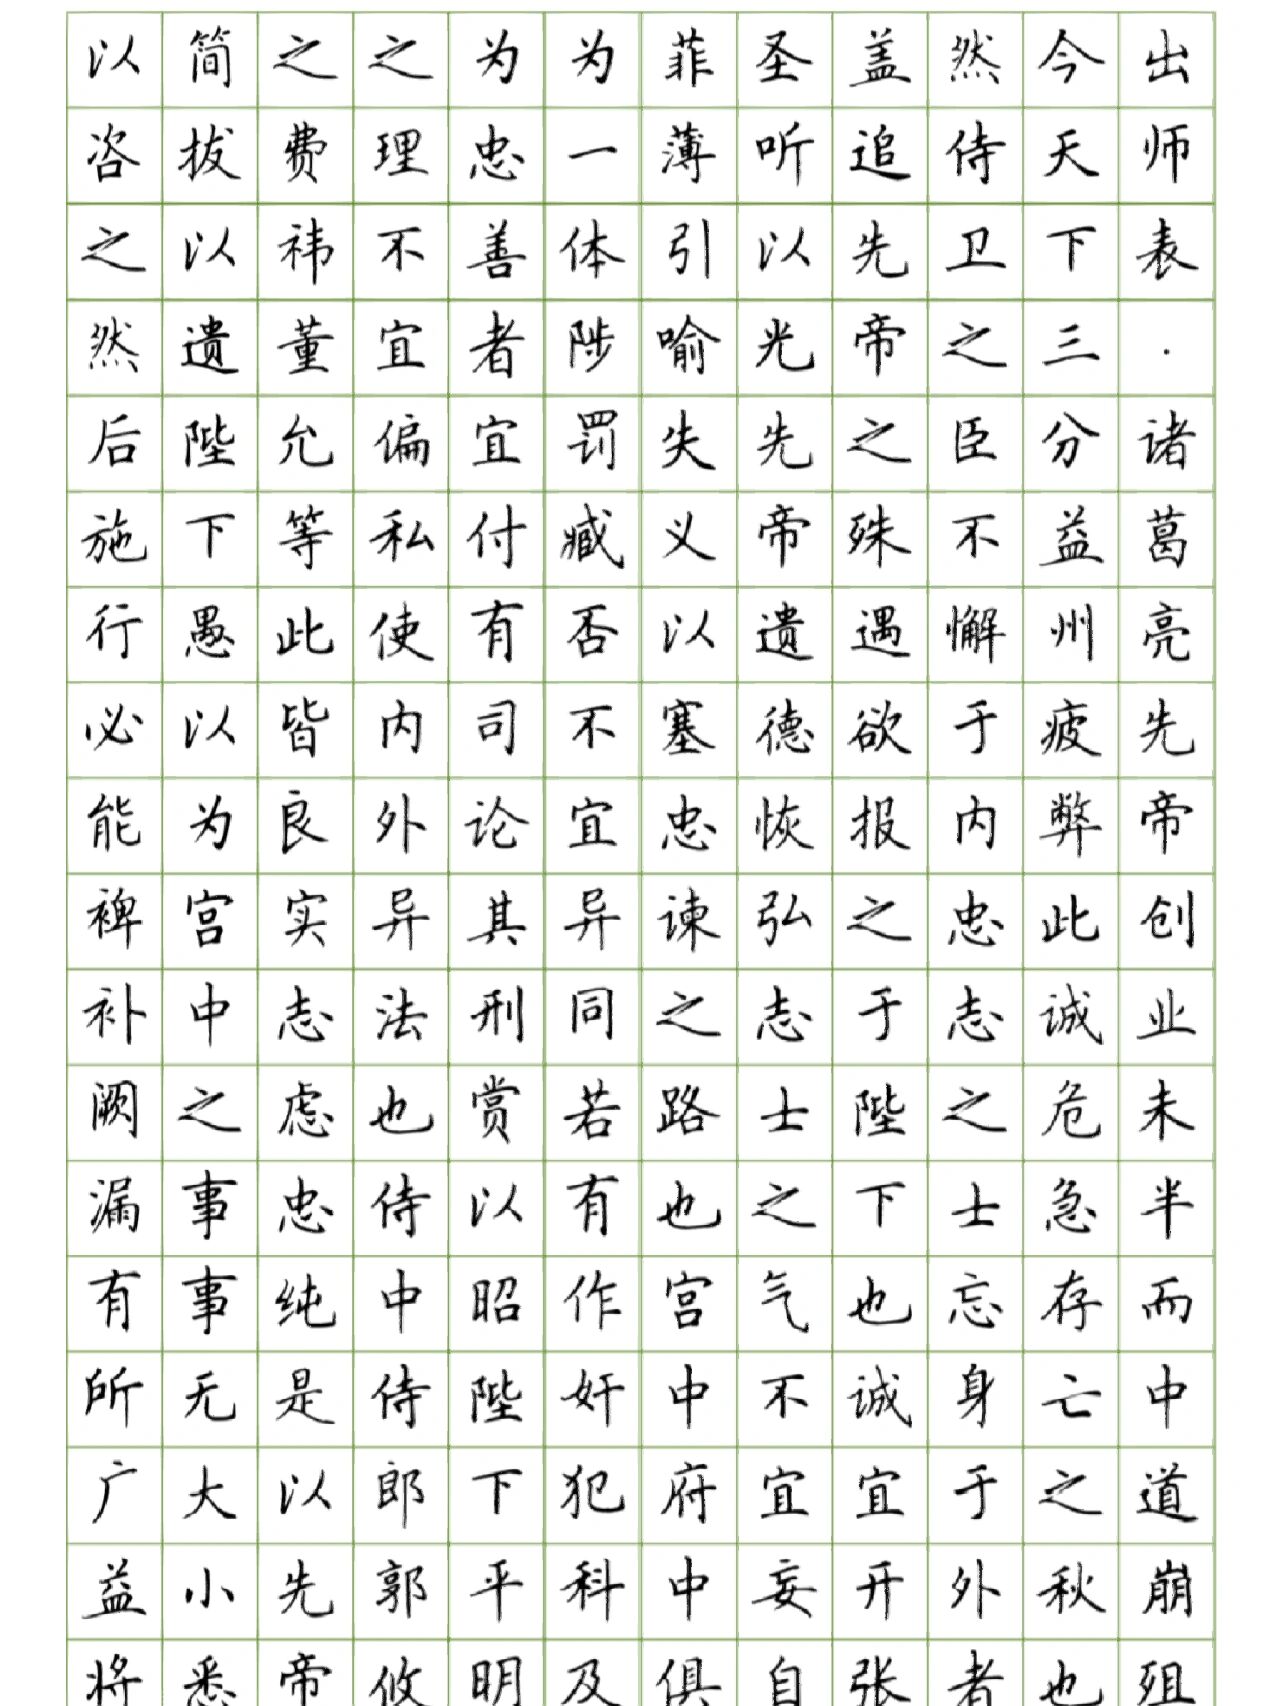 出师表·诸葛亮先帝创业未半而中道崩殂
今天下三分益州疲弊此诚危急存亡之秋也
然侍卫之臣不懈于内忠志之士忘身于外者
盖追先帝之殊遇欲报之于陛下也诚宜开张
圣听以光先帝遗德恢弘志士之气不宜妄自
菲薄引喻失义以塞忠谏之路也宫中府中俱
为一体陟罚臧否不宜异同若有作奸犯科及
为忠善者宜付有司论其刑赏以昭陛下平明
之理不宜偏私使内外异法也侍中侍郎郭攸
之费祎董允等此皆良实志虑忠纯是以先帝
简拔以遗陛下愚以为宫中之事事无大小悉
以咨之然后施行必能裨补阙漏有所广益将